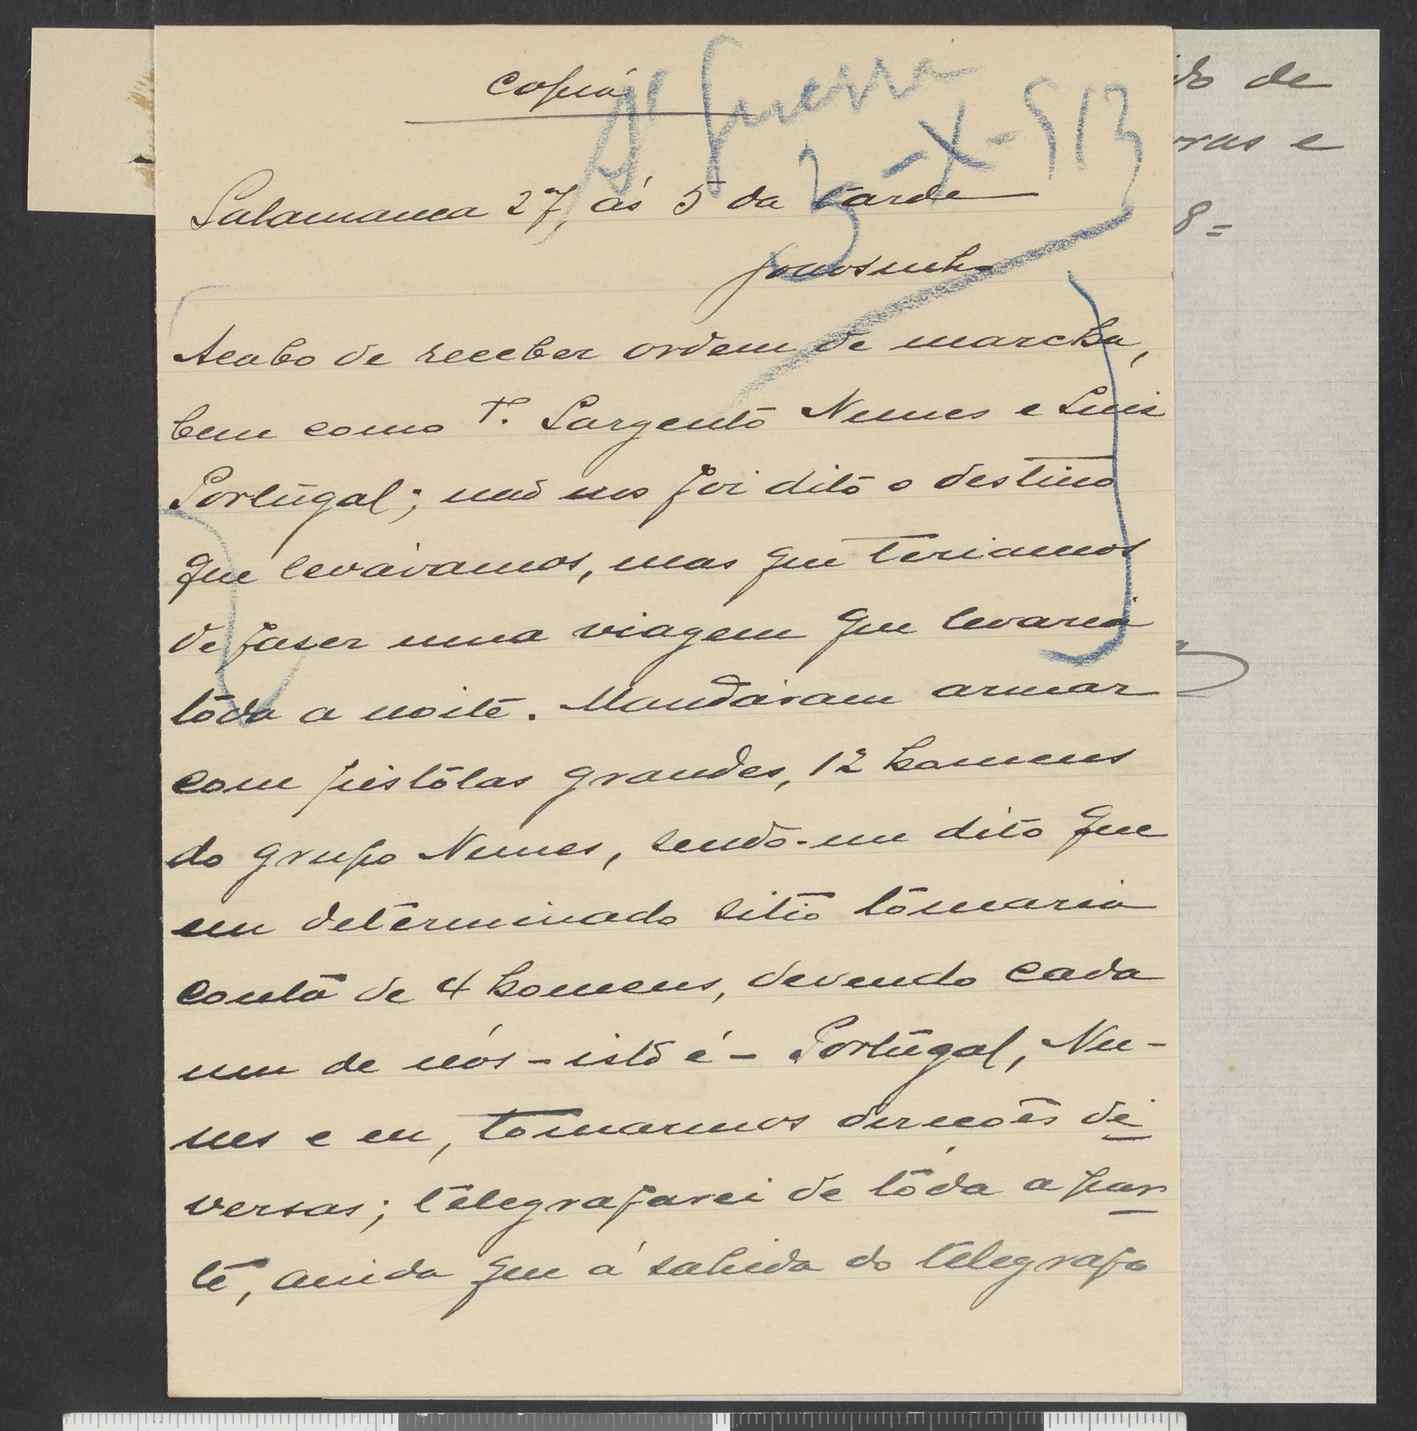 Copia
Dr Guerra
3-X-913
Salamanca 27, ás 5 da tarde
Acabo de receber ordem de marcha,
bem como T. Sargento Nunes e Luis
Portugal; não nos foi dito o destino
que levávamos, mas que teriamos
de faser uma viagem que levaria
tôda a noite. Mandáram armar
com pistólas grandes, 12 homens
do grupo Nunes, sendo-me dito que
em determinado sitio tômaria
conta de 4 homens, devendo cada
um de nós - isto é - Portugal, Nu-
nes e eu, tomarmos direções di
versas; telegrafarei de tôda a par
te, ainda que á sahida do telegrafo
do de
ras e
8=